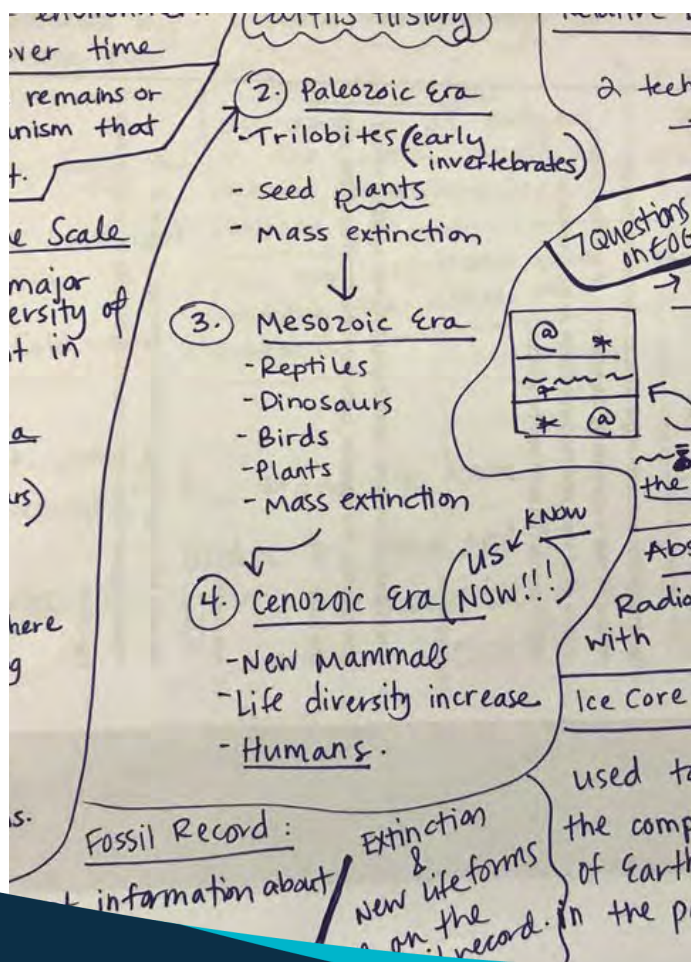 over time
remains or
that
e Scale
major
ersity of
in
here
(Earth's History)
2.) Paleozoic Era
- Trilobites (early
invertebrates)
- seed plants
- Mass extinction
3.) Mesozoic Era
- Reptiles
- Dinosaurs
- Birds
- Plants
- Mass extinction
4.) Cenozoic Era (US NOW!!!)
KNOW
- New Mammals
- Life diversity increase
- Humans.
Fossil Record:
information about
Extinction
&
New life forms
on the
record.
2 tech
7 Questions
on EOG
@ *
* @
the
Abs
Radio
with
Ice Core
used to
the comp
of Earth
in the p